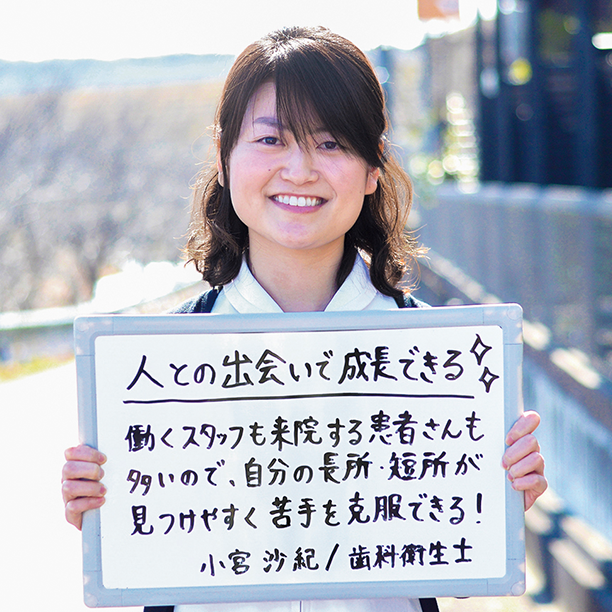 人との出会いで成長できる
働くスタッフも来院する患者さんも
多いので、自分の長所・短所が
見つけやすく苦手を克服できる!
小宮 沙紀/歯科衛生士